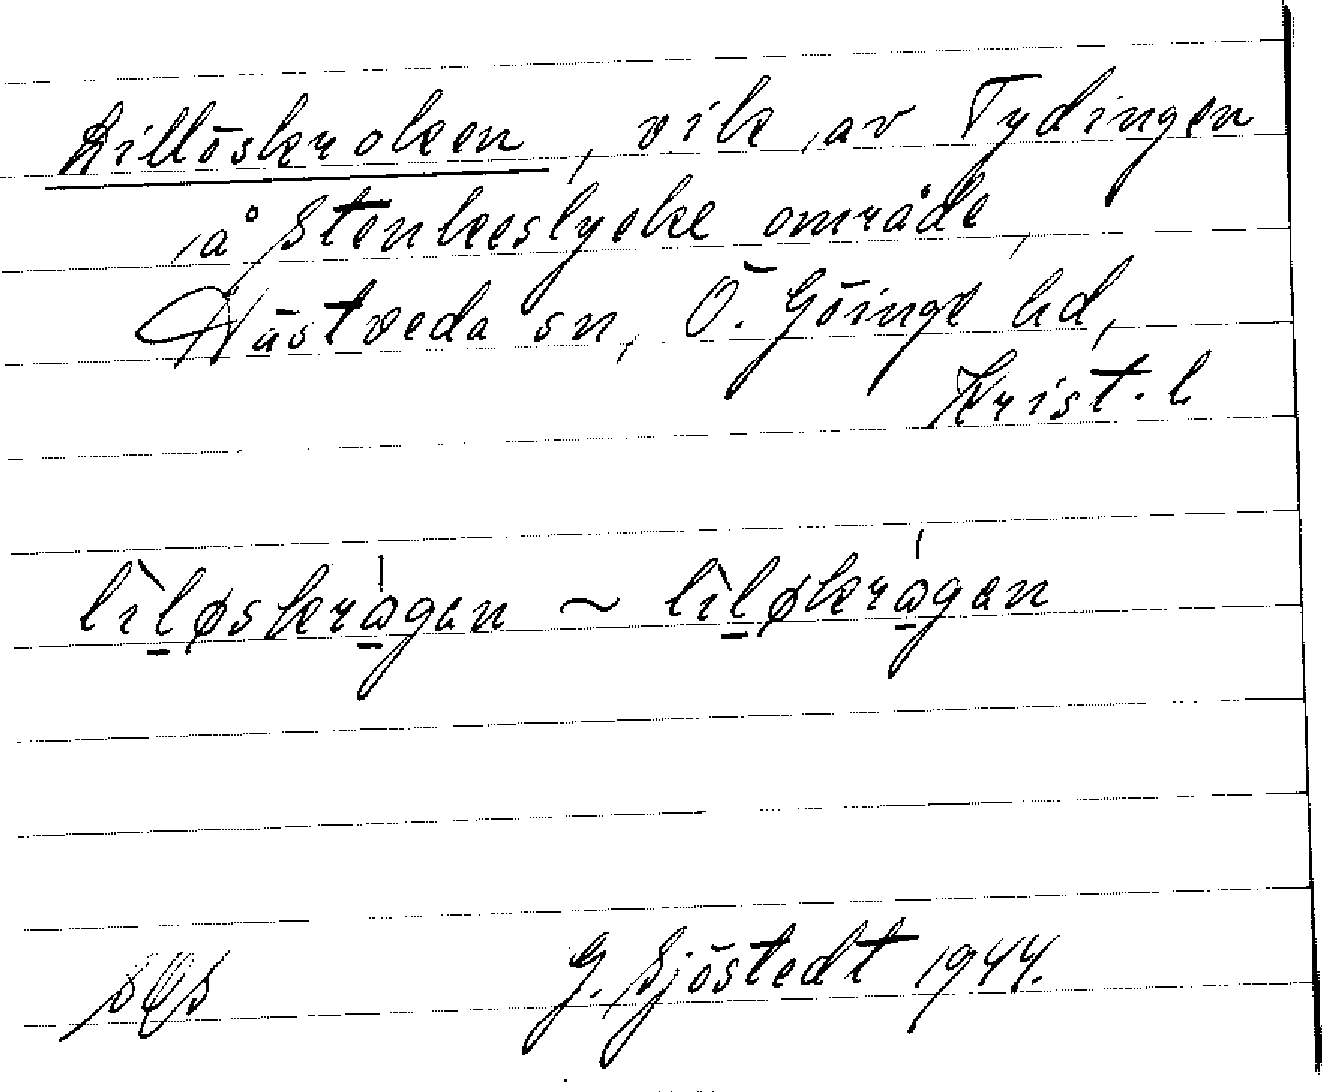 Lillöskroken, vik av Tydingen
å Stenkeslycke område,
Hästveda sn, Ö. Göinge hd,
Krist. l
lìløskrågan ~ lìløkrågan
G. Sjöstedt 1944.